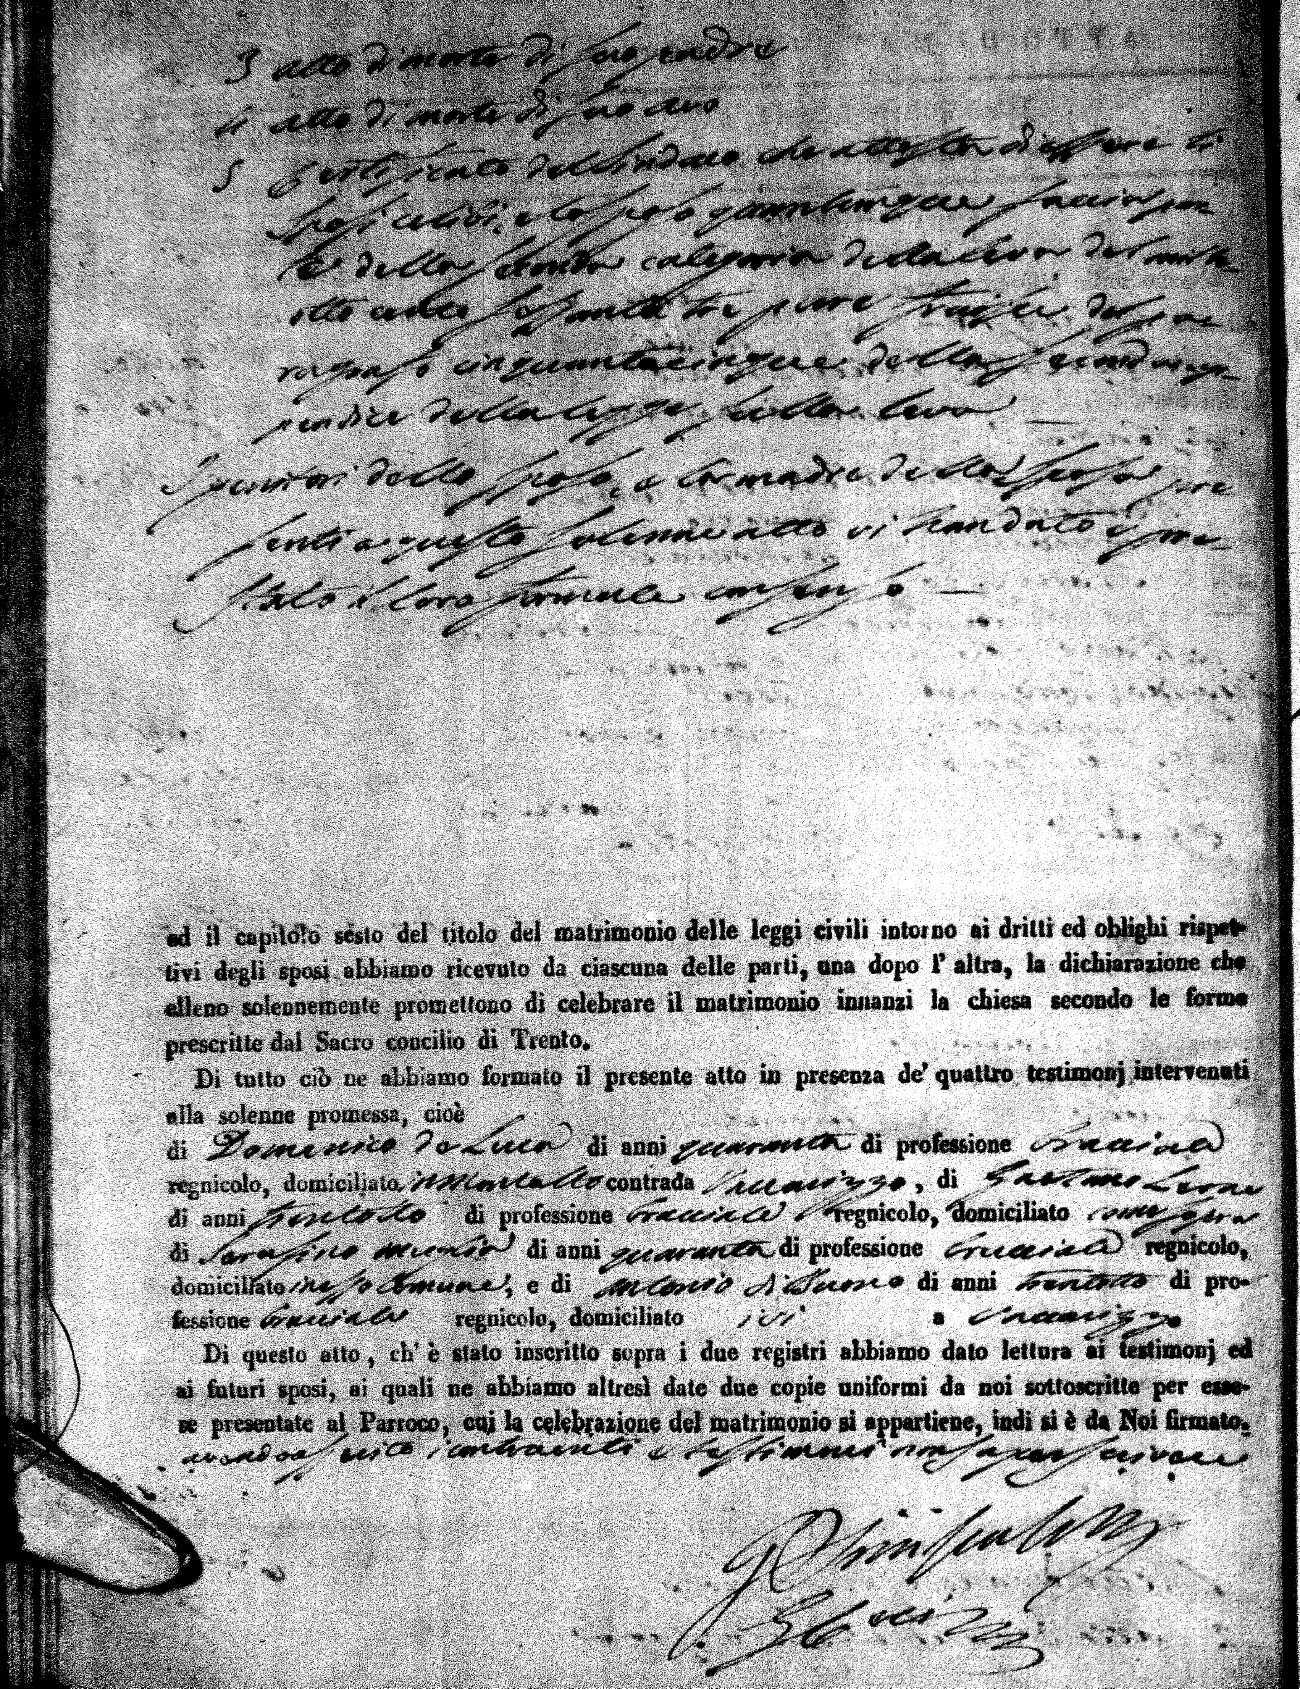 3 atto di morte di suo padre
4 atto di morte di suo avo
5 Certificato del Sindaco che attesta di essere li
sposi celibi, e lo sposo quantunque facci par
te della seconda categoria della leva del mille
otto cento sessanta tre pure fruisce del pa
ragrafo cinquantacinque della seconda ap
pendice della legge sulla leva
I genitori dello sposo, e la madre della sposa pre
senti a questo solenne atto vi han dato e pre
stato il loro formale consenso
ed il capitolo sesto del titolo del matrimonio delle leggi civili intorno ai dritti ed oblighi rispet-
tivi degli sposi abbiamo ricevuto da ciascuna delle parti, una dopo l' altra, la dichiarazione che
elleno solennemente promettono di celebrare il matrimonio innanzi la chiesa secondo le forme
prescritte dal Sacro concilio di Trento.
Di tutto ciò ne abbiamo formato il presente atto in presenza de' quattro testimonj intervenuti
alla solenne promessa, cioè
di Domenico de Luca di anni quaranta di professione bracciale
regnicolo, domiciliato in Montalto contrada Vaccarizzo, di Gaetano Leone
di anni trentotto di professione bracciale regnicolo, domiciliato come sopra
di Serafino di anni quaranta di professione bracciale regnicolo,
domiciliato in esso Comune, e di Antonio di Buono di anni trentotto di pro-
fessione bracciale regnicolo, domiciliato ivi a Vaccarizzo
Di questo atto, ch' è stato inscritto sopra i due registri abbiamo dato lettura ai testimonj ed
ai futuri sposi, ai quali ne abbiamo altresì date due copie uniformi da noi sottoscritte per esse-
re presentate al Parroco, cui la celebrazione del matrimonio si appartiene, indi si è da Noi firmato.
avendo asserito i contraenti e testimoni non saper scrivere